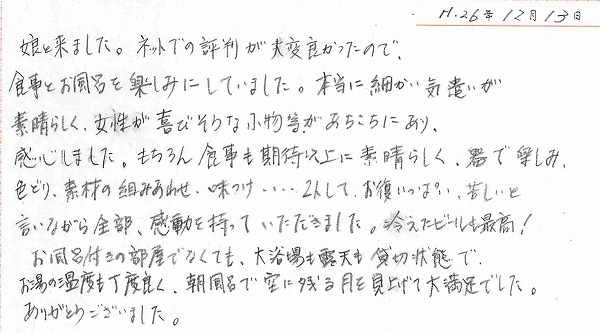 H.26年12月13日
娘と来ました。ネットでの評判が大変良かったので、
食事とお風呂を楽しみにしていました。本当に細かい気遣いが
素晴らしく、女性が喜びそうな小物等があちこちにあり、
感心しました。もちろん食事も期待以上に素晴らしく、器で楽しみ、
色どり、素材の組みあわせ、味つけ・・・・・2人して、お腹いっぱい、苦しいと
言いながら全部、感動を持っていただきました。冷えたビールも最高!
お風呂付きの部屋でなくても、大浴場も露天も貸切状態で、
お湯の温度も丁度良く、朝風呂で空に残る月を見上げて大満足でした。
ありがとうございました。